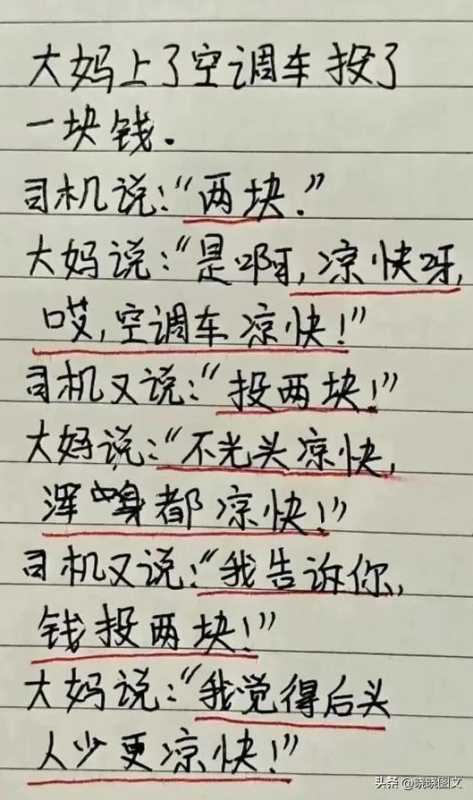 大妈上了空调车投了
一块钱.
司机说:“两块.”
大妈说:“是啊,凉快呀,
哎,空调车凉快!”
司机又说:“投两块!”
大妈说:“不光头凉快,
浑身都凉快!”
司机又说:“我告诉你,
钱投两块!”
大妈说:“我觉得后头
人少更凉快!”
头条 @晓晓图文